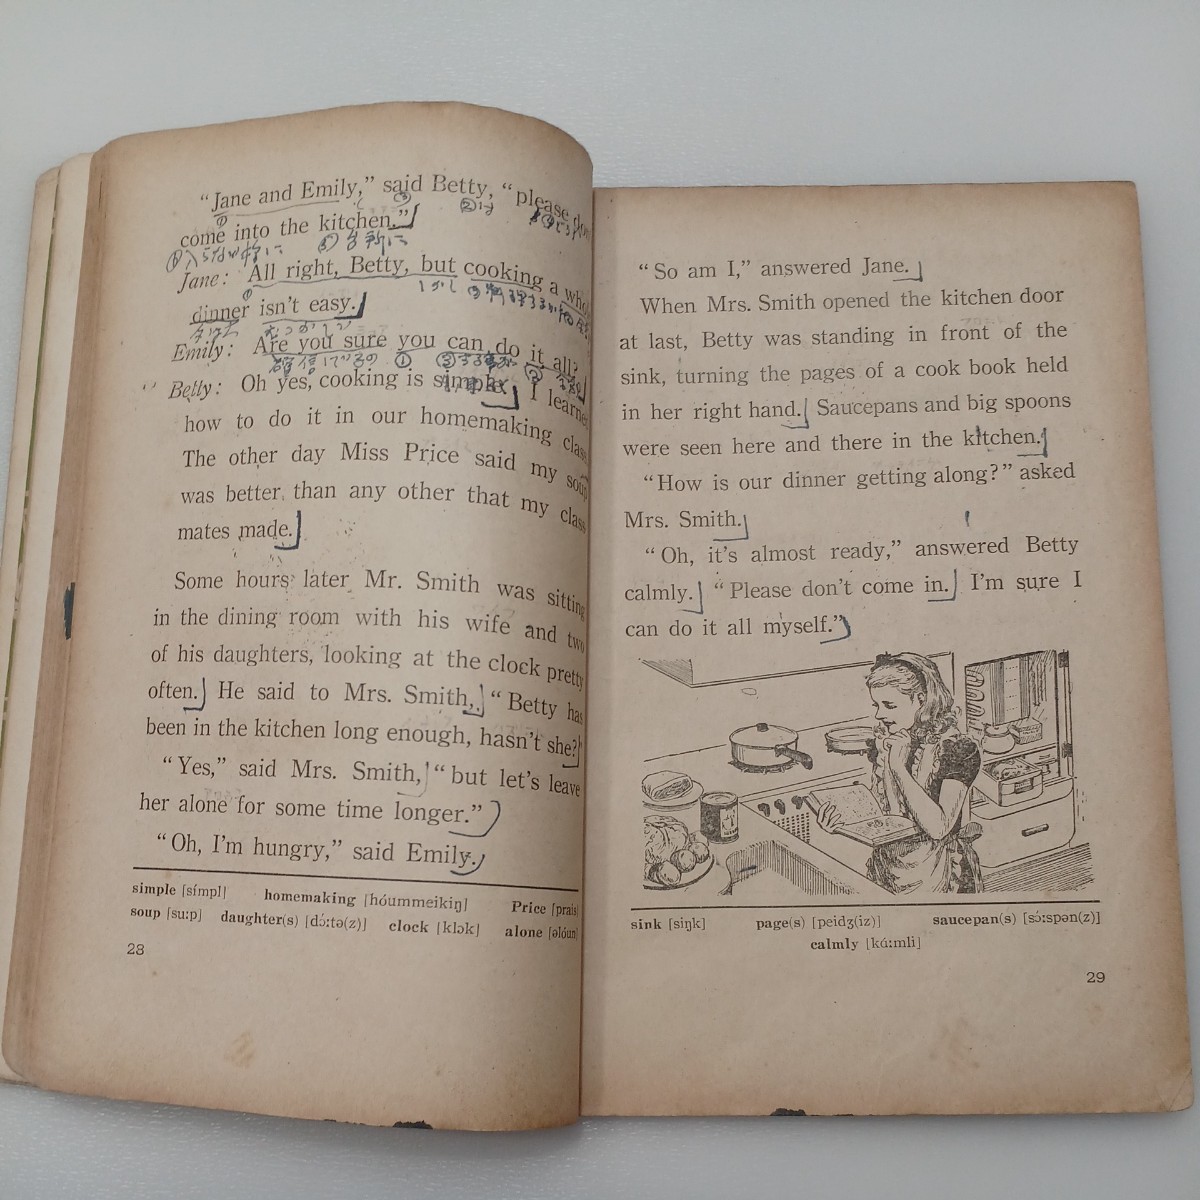 “Jane and Emily,” said Betty, “please don't
come into the kitchen.”
Jane: All right, Betty, but cooking a whole
dinner isn't easy.
Emily: Are you sure you can do it all?
Betty: Oh yes, cooking is simple. I learned
how to do it in our homemaking class.
The other day Miss Price said my soup
was better than any other that my class-
mates made.
Some hours later Mr. Smith was sitting
in the dining room with his wife and two
of his daughters, looking at the clock pretty
often. He said to Mrs. Smith, “Betty has
been in the kitchen long enough, hasn't she?”
“Yes,” said Mrs. Smith, “but let's leave
her alone for some time longer.”
“Oh, I'm hungry,” said Emily.
simple [símpl] homemaking [hóummeikiŋ] Price [prais]
soup [su:p] daughter(s) [dɔ́:tə(z)] clock [klɔk] alone [əlóun]
28
“So am I,” answered Jane.
When Mrs. Smith opened the kitchen door
at last, Betty was standing in front of the
sink, turning the pages of a cook book held
in her right hand. Saucepans and big spoons
were seen here and there in the kitchen.
“How is our dinner getting along?” asked
Mrs. Smith.
“Oh, it's almost ready,” answered Betty
calmly. “Please don't come in. I'm sure I
can do it all myself.”
sink [siŋk] page(s) [peidʒ(iz)] saucepan(s) [sɔ́:spən(z)]
calmly [kɑ́:mli]
29